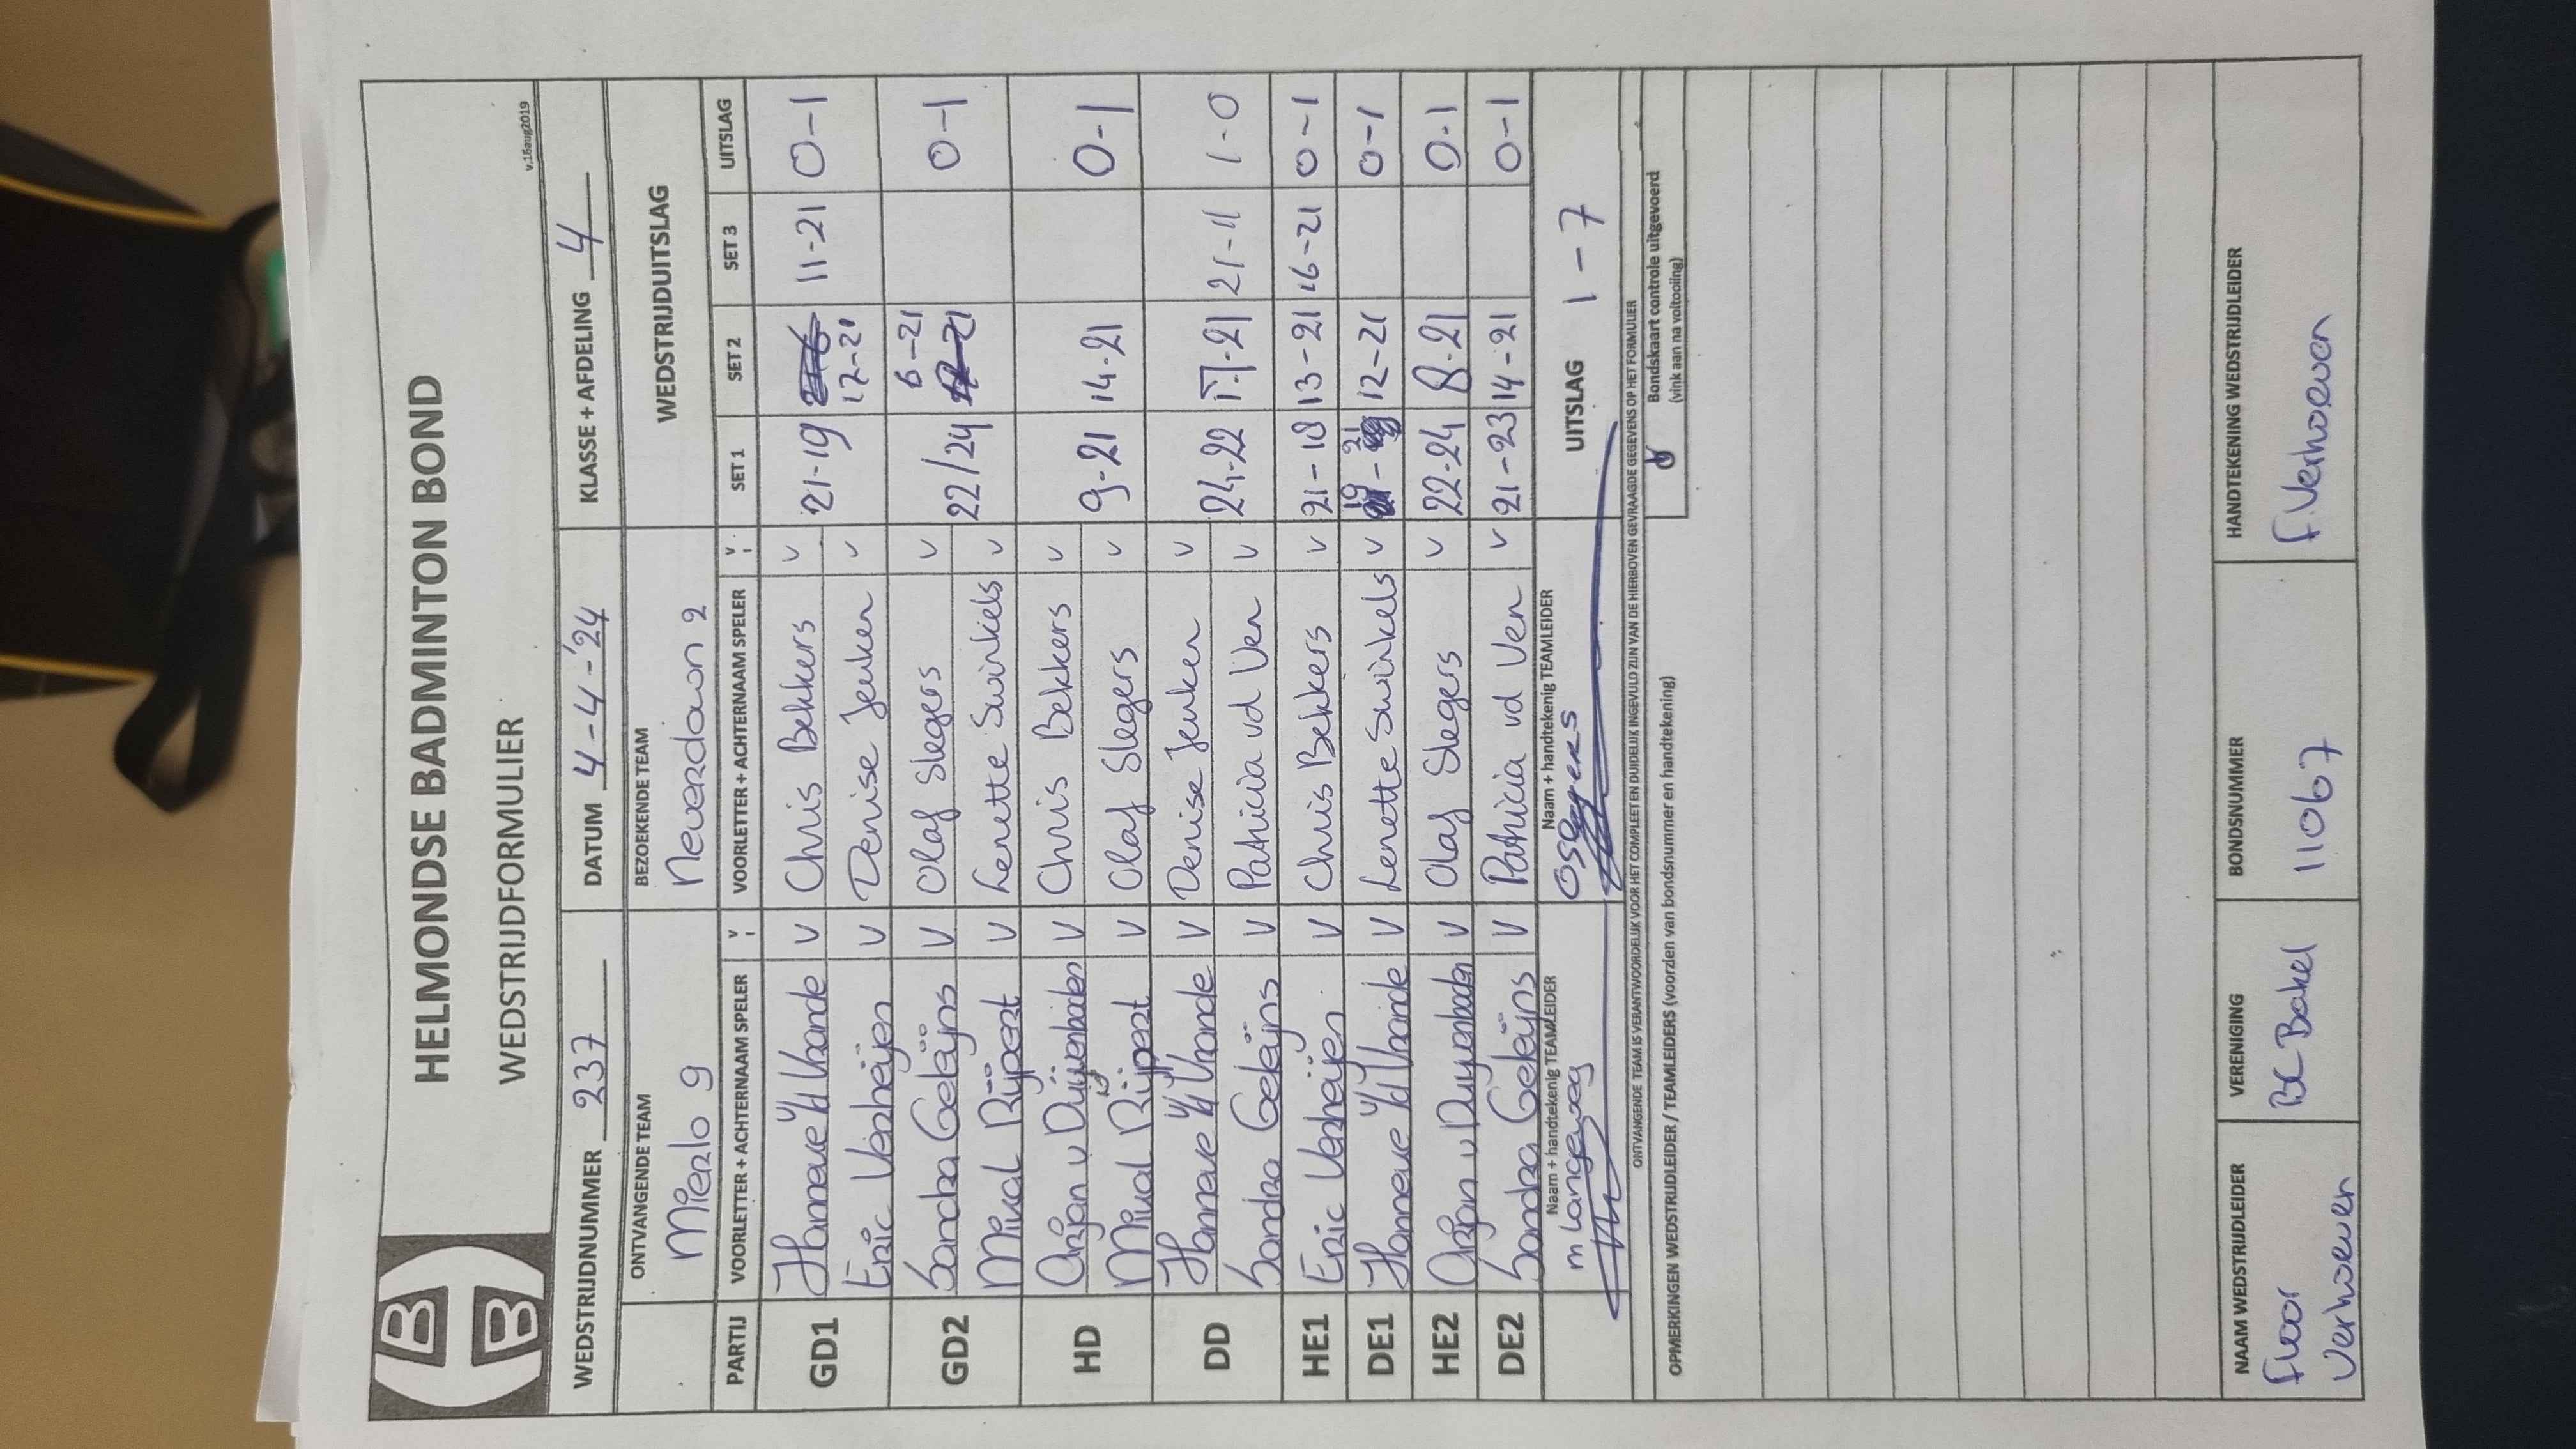 HELMONDSE BADMINTON BOND
WEDSTRIJDFORMULIER
v.16aug2019
WEDSTRIJDNUMMER 237 DATUM 4-4-'24 KLASSE + AFDELING 4
ONTVANGENDE TEAM BEZOEKENDE TEAM WEDSTRIJDUITSLAG
Mierlo 9 Neverdown 2
PARTIJ VOORLETTER + ACHTERNAAM SPELER V VOORLETTER + ACHTERNAAM SPELER V SET 1 SET 2 SET 3 UITSLAG
GD1 Hanneke vd Vrande V Chris Bekkers V 21-19 12-21 11-21 0-1
Eric Verheijen V Denise Jenken V
GD2 Sandra Geleijns V Olaf Slegers V 22/24 6-21 0-1
Mical Rijpert V Lenette Swinkels V
HD Arjan v Duijenboden V Chris Bekkers V 9-21 14-21 0-1
Mical Rijpert V Olaf Slegers V
DD Hanneke vd Vrande V Denise Jenken V 24-22 17-21 21-11 1-0
Sandra Geleijns V Patricia vd Ven V
HE1 Eric Verheijen V Chris Bekkers V 21-18 13-21 16-21 0-1
DE1 Hanneke vd Vrande V Lenette Swinkels V 19-21 12-21 0-1
HE2 Arjan v Duyenboden V Olaf Slegers V 22-24 8-21 0-1
DE2 Sandra Geleijns V Patricia vd Ven V 21-23 14-21 0-1
Naam + handtekenig TEAMLEIDER Naam + handtekenig TEAMLEIDER UITSLAG 1-7
m Langeweg OSlegers
ONTVANGENDE TEAM IS VERANTWOORDELIJK VOOR HET COMPLEET EN DUIDELIJK INGEVULD ZIJN VAN DE HIERBOVEN GEVRAAGDE GEGEVENS OP HET FORMULIER
OPMERKINGEN WEDSTRIJDLEIDER / TEAMLEIDERS (voorzien van bondsnummer en handtekening)
Bondskaart controle uitgevoerd
(vink aan na voltooiing)
NAAM WEDSTRIJDLEIDER VERENIGING BONDSNUMMER HANDTEKENING WEDSTRIJDLEIDER
Floor BC Bakel 11067 F.Verhoeven
Verhoeven